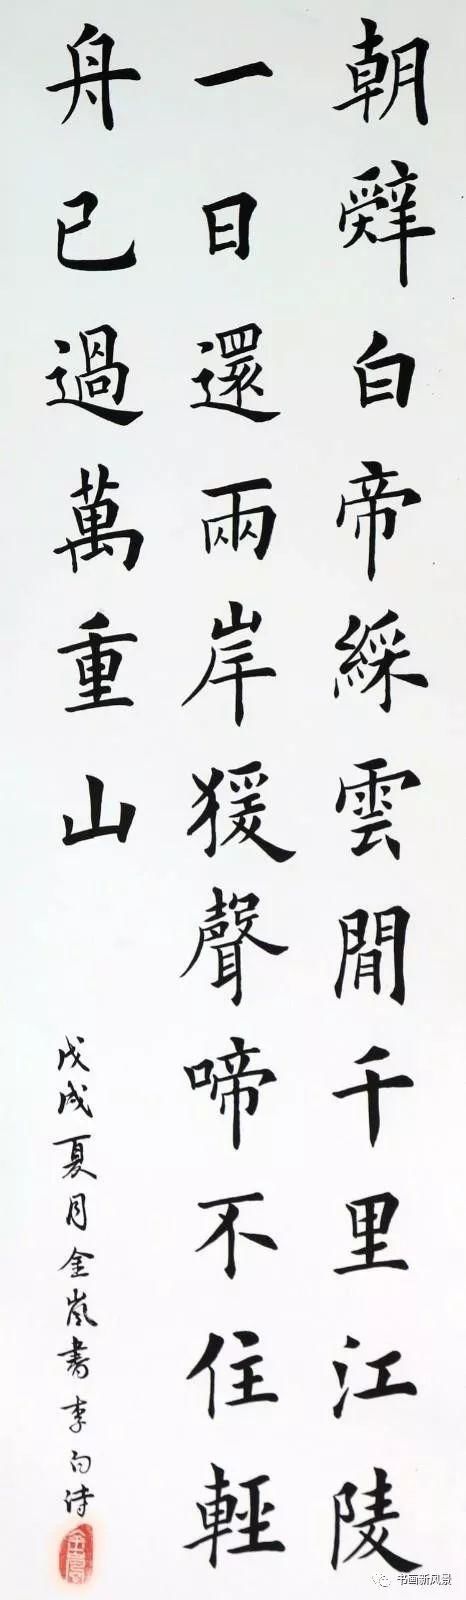 朝辤白帝綵雲間千里江陵
一日還兩岸猨聲啼不住輕
舟已過萬重山
戊戌夏月金嵐書李白詩
书画新风景